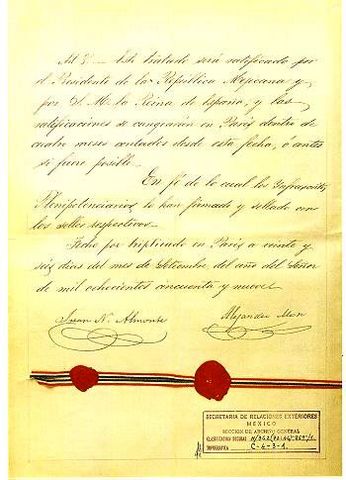 Art 5º — Este tratado será ratificado por
el Presidente de la República Mexicana y
por S. M. la Reina de España, y las
ratificaciones se cangearán en Paris dentro de
cuatro meses contados desde esta fecha, ó antes
si fuere posible.
En fé de lo cual los Infrascritos
Plenipotenciarios lo han firmado y sellado con
los sellos respectivos.
Fecho por triplicado en Paris a veinte y
seis dias del mes de Setiembre del año del Señor
de mil ochocientos cincuenta y nueve.
Juan N. Almonte Alejandro Mon
SECRETARIA DE RELACIONES EXTERIORES
MEXICO
SECCION DE ARCHIVO GENERAL
CLASIFICACION DECIMAL
TOPOGRAFICA C-4-3-1.